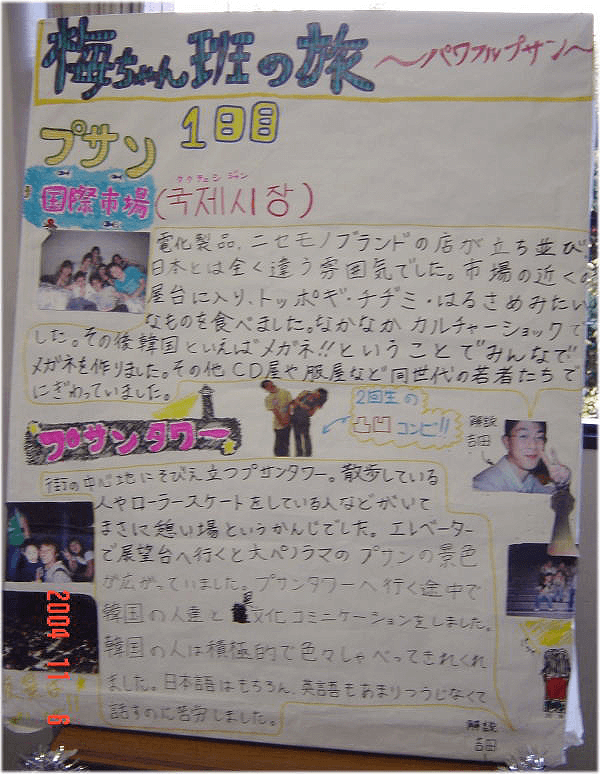 梅ちゃん班の旅 ～パワフルプサン～
プサン 1日目
ククチェシジャン
国際市場(국제시장)
電化製品、ニセモノブランドの店が立ち並び
日本とは全く違う雰囲気でした。市場の近くの
屋台に入り、トッポギ・チヂミ・はるさめみたい
なものを食べました。なかなかカルチャーショックで
した。その後韓国といえばメガネ!!ということでみんなで
メガネを作りました。その他CD屋や服屋など同世代の若者たちで
にぎわっていました。
2回生の
凸凹コンビ!!
解説
吉田
プサンタワー
街の中心地にそびえ立つプサンタワー。散歩している
人やローラースケートをしている人などがいて
まさに憩い場というかんじでした。エレベーター
で展望台へ行くと大パノラマのプサンの景色
が広がっていました。プサンタワーへ行く途中で
韓国の人達と異文化コミニケーションをしました。
韓国の人は積極的で色々しゃべってきれくれ
ました。日本語はもちろん、英語もあまりつうじなくて
話すのに苦労しました。
解説
吉田
2004 11 6